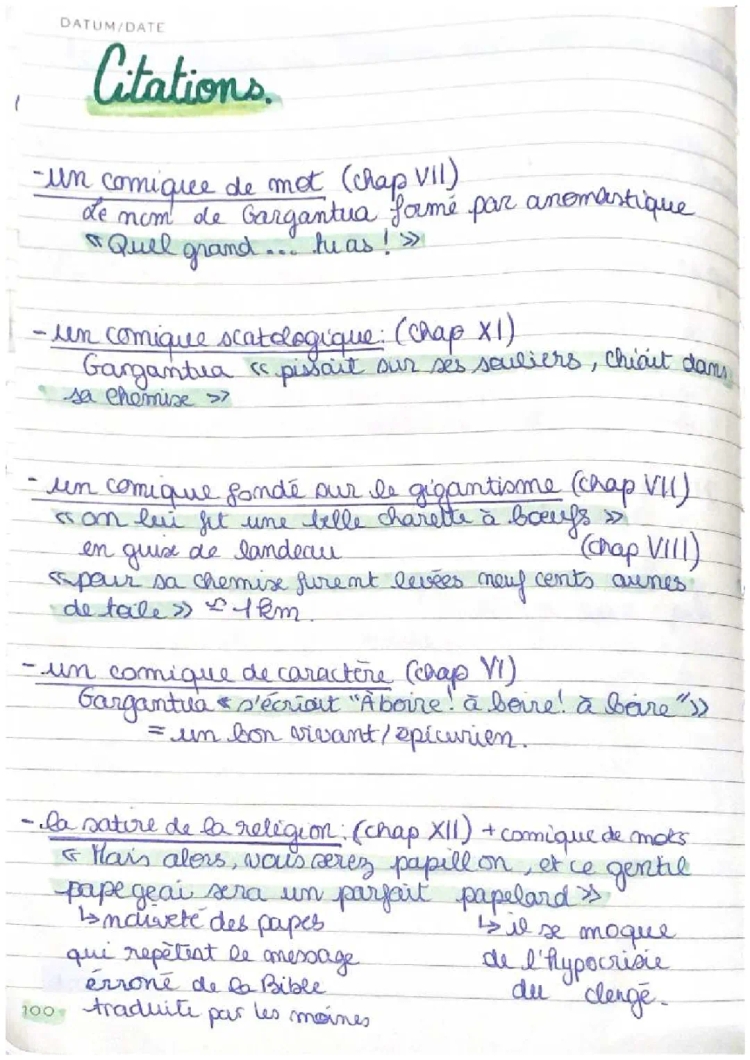 DATUM/DATE
Citations.
- un comique de mot (chap VII)
Le nom de Gargantua formé par anomastique
« Quel grand ... tu as ! »
- un comique scatologique : (chap XI)
Gargantua « pissait sur ses souliers, chiait dans
sa chemise »
- un comique fondé sur le gigantisme (chap VII)
« on lui fit une belle charette à bœufs »
en guise de landeau (chap VIII)
« pour sa chemise furent levées neuf cents aunes
de toile » ≃ 1km.
- un comique de caractère (chap VI)
Gargantua « s'écriait "À boire ! à boire ! à boire" »
= un bon vivant / épicurien.
- la satire de la religion : (chap XII) + comique de mots
« Mais alors, vous serez papillon, et ce gentil
papegeai sera un parfait papelard »
↳ naïveté des papes ↳ il se moque
qui répètent le message de l'hypocrisie
érroné de la Bible du clergé.
traduite par les moines
100